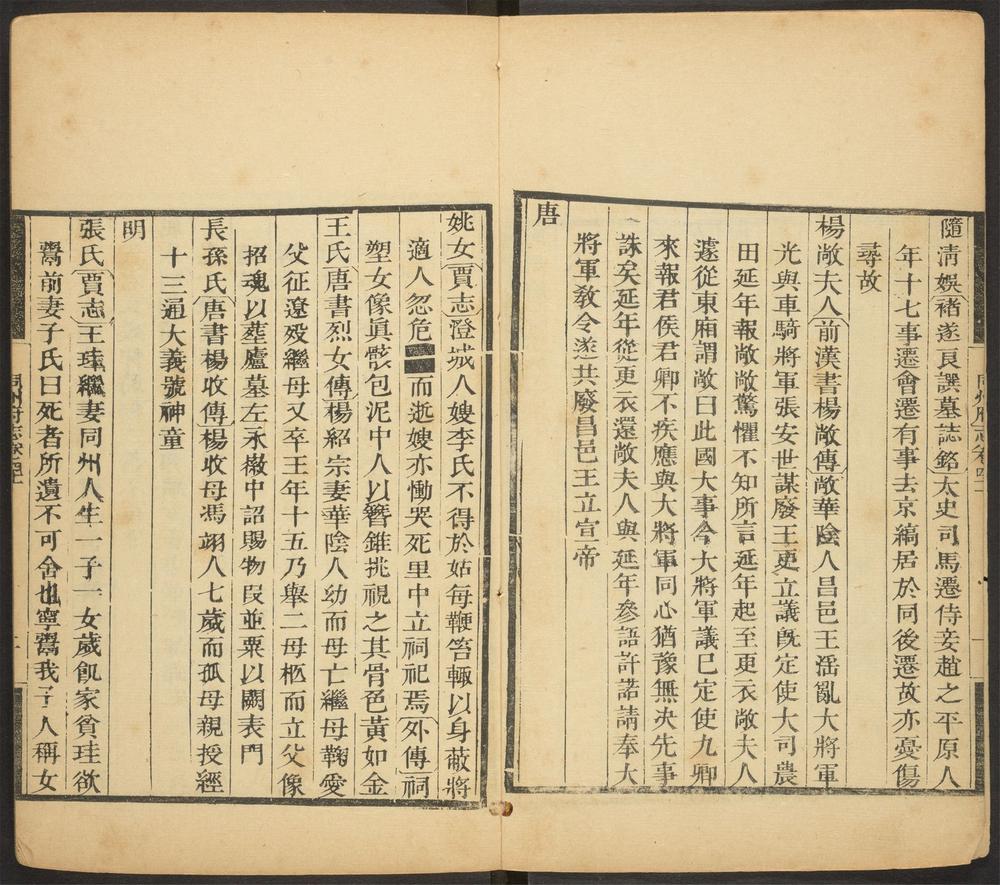 隨淸娛褚遂良譔墓誌銘太史司馬遷侍妾趙之平原人
年十七事遷會遷有事去京縞居於同後遷故亦憂傷
尋故
楊敞夫人前漢書楊敞傳敞華陰人昌邑王淫亂大將軍
光與車騎將軍張安世謀廢王更立議旣定使大司農
田延年報敞敞驚懼不知所言延年起至更衣敞夫人
遽從東廂謂敞曰此國大事今大將軍議已定使九卿
來報君侯君卿不疾應與大將軍同心猶豫無决先事
誅矣延年從更衣還敞夫人與延年參語許諾請奉大
將軍敎令遂共廢昌邑王立宣帝
唐
姚女賈志澄城人嫂李氏不得於姑每鞭笞輒以身蔽將
適人忽危而逝嫂亦慟哭死里中立祠祀焉外傳祠
塑女像眞骸包泥中人以簪錐挑視之其骨色黃如金
王氏唐書烈女傳楊紹宗妻華陰人幼而母亡繼母鞠愛
父征遼歿繼母又卒王年十五乃舉二母柩而立父像
招魂以塟廬墓左永徽中詔賜物段並粟以闕表門
長孫氏唐書楊收傳楊收母馮翊人七歲而孤母親授經
十三通大義號神童
明
張氏賈志王珪繼妻同州人生一子一女歲飢家貧珪欲
鬻前妻子氏曰死者所遺不可舍也寧鬻我子人稱女
同州府志卷